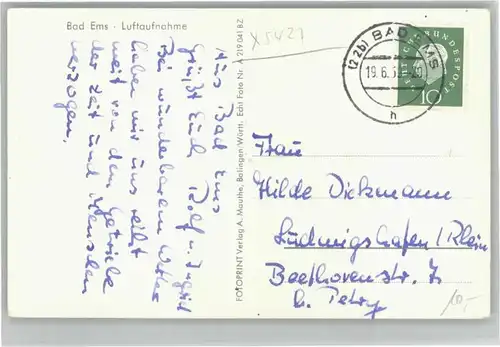 Bad Ems - Luftaufnahme
Aus Bad Ems
grüßt Euch Rolf u. Ingrid
Bei wunderbarem Wetter
haben wir uns selbst
weit von dem Getriebe
der Zeit und Menschen
verzogen.
FOTOPRINT Verlag A. Mauthe, Balingen/Württ. Echt Foto Nr. A 219 041 BZ
(22b) BAD EMS
19.6.5
h
DEUTSCHE BUNDESPOST
10
Frau
Hilde Dickmann
Ludwigshafen/Rhein
Beethovenstr. 7
b. Petry
10,-